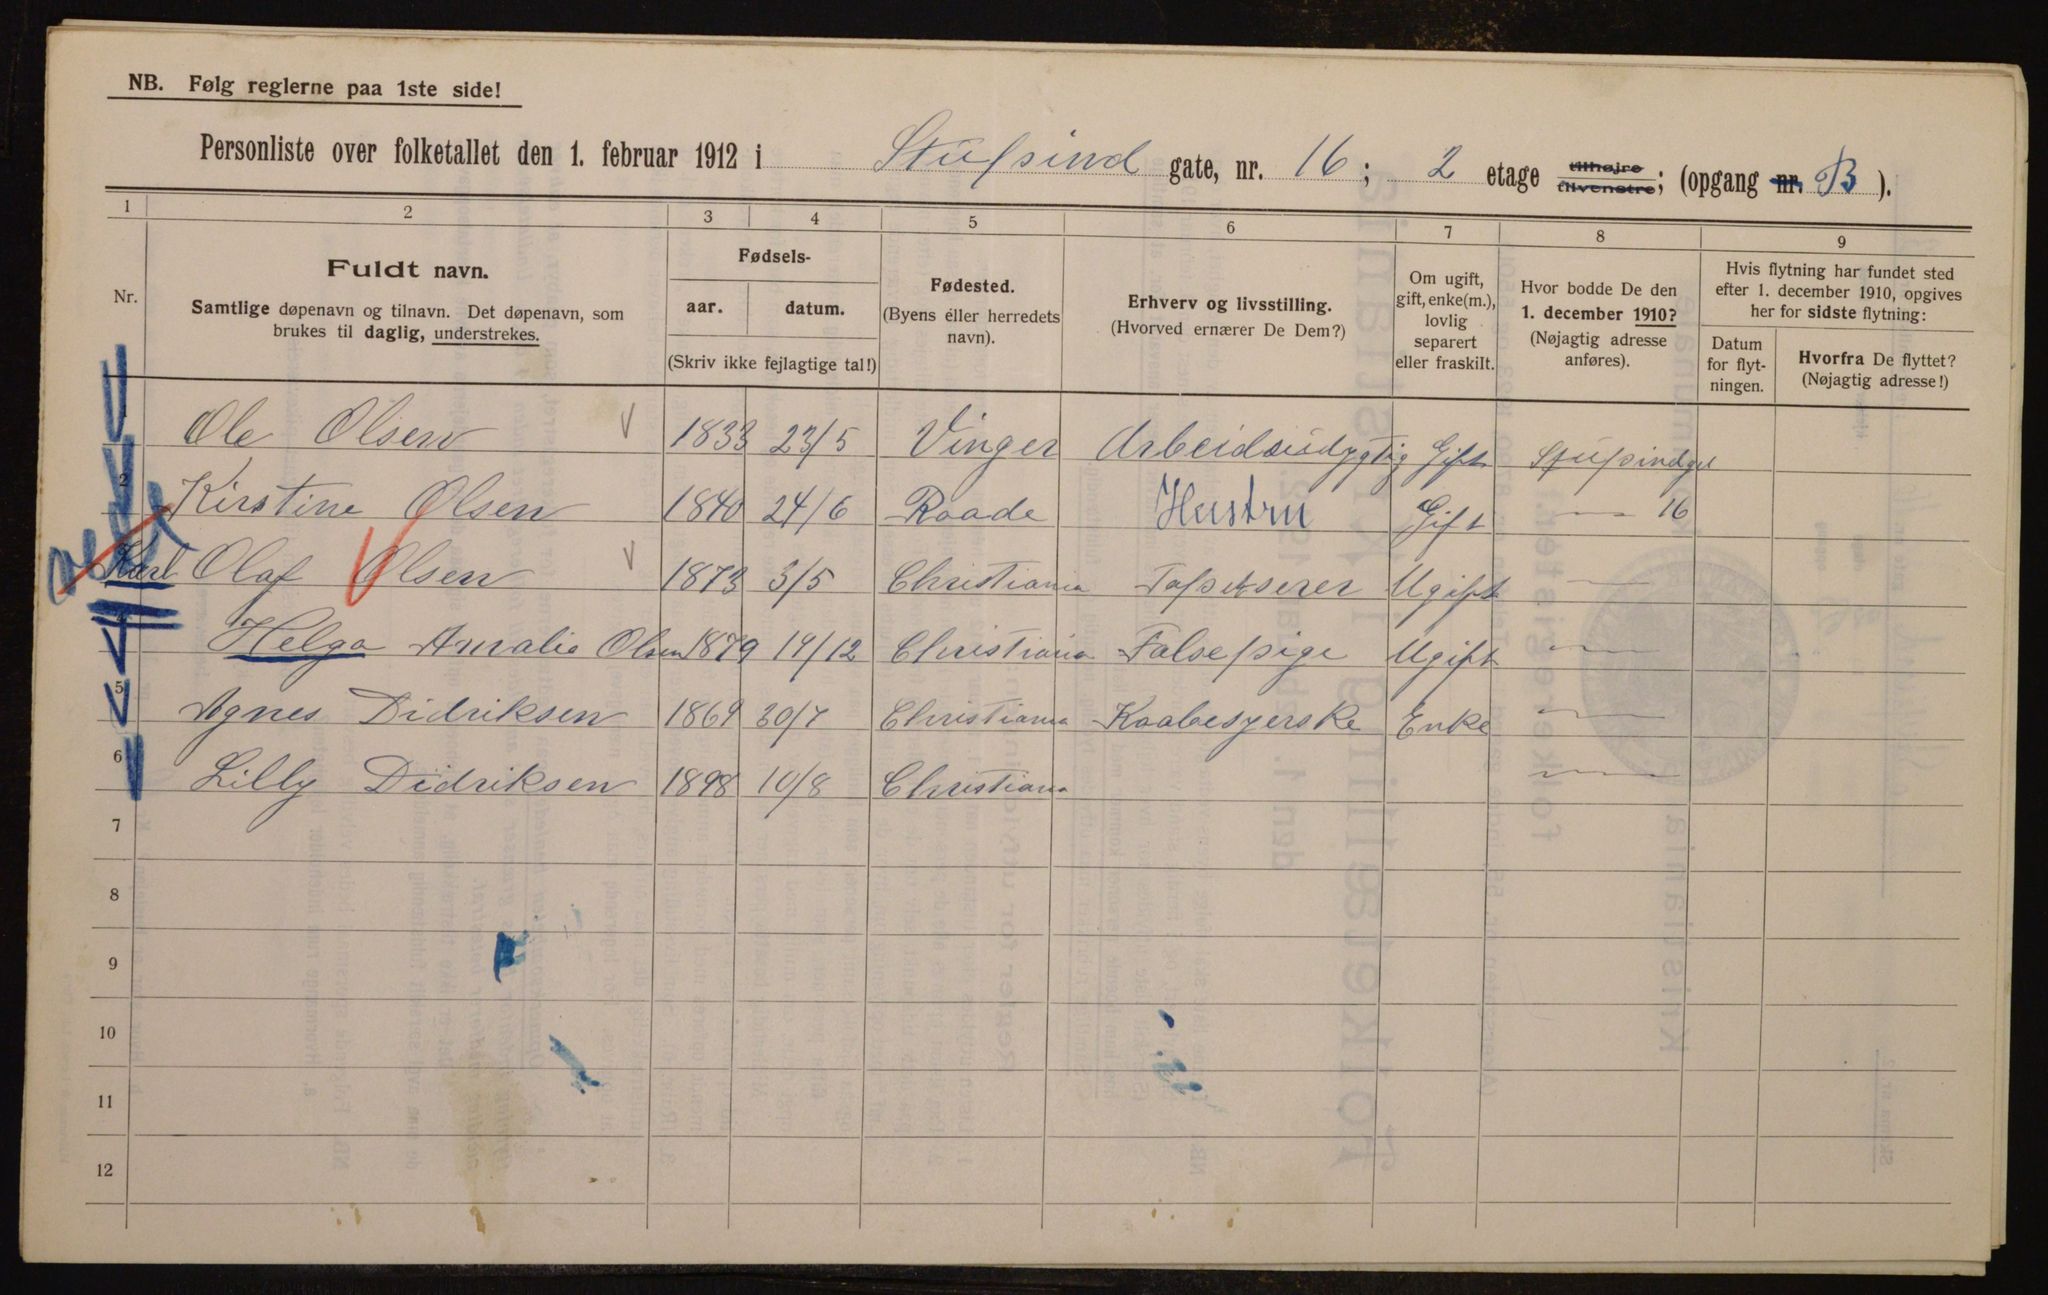 NB. Følg reglerne paa 1ste side!
Personliste over folketallet den 1. februar 1912 i Stupind gate, nr. 16; 2 etage tilhøjre tilvenstre; (opgang nr. B).
1 2 3 4 5 6 7 8 9
Nr.
Fuldt navn.
Samtlige døpenavn og tilnavn. Det døpenavn, som
brukes til daglig, understrekes.
Fødsels-
aar. datum.
(Skriv ikke fejlagtige tal!)
Fødested.
(Byens eller herredets
navn).
Erhverv og livsstilling.
(Hvorved ernærer De Dem?)
Om ugift,
gift, enke(m.),
lovlig
separert
eller fraskilt.
Hvor bodde De den
1. december 1910?
(Nøjagtig adresse
anføres).
Hvis flytning har fundet sted
efter 1. december 1910, opgives
her for sidste flytning:
Datum
for flyt-
ningen.
Hvorfra De flyttet?
(Nøjagtig adresse!)
1 Ole Olsen 1833 23/5 Vinger Arbeidsudygtig Gift Stupindgt
2 Kirstine Olsen 1840 24/6 Raade Hustru Gift — 16
Karl Olaf Olsen 1873 3/5 Christiania Tapetserer Ugift —
Helga Amalie Olsen 1879 19/12 Christiania Falsepige Ugift —
5 Agnes Didriksen 1869 30/7 Christiania Kaabesyerske Enke —
6 Lilly Didriksen 1898 10/8 Christiania —
7
8
9
10
11
12